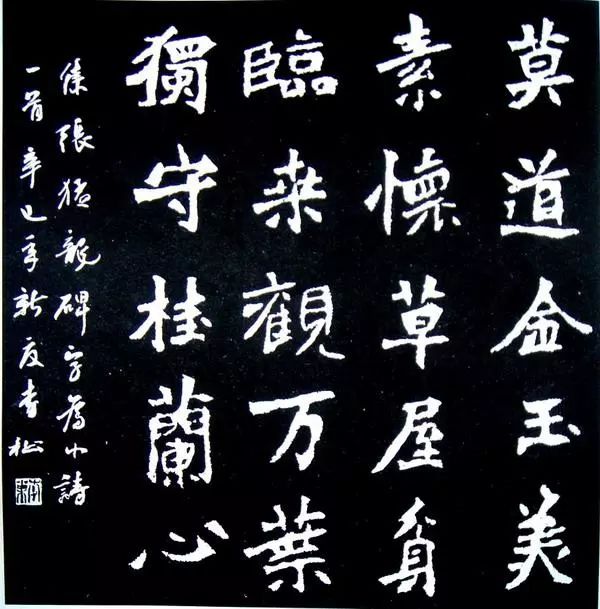 莫道金玉美
素懷草屋貧
臨桒觀万葉
獨守桂蘭心
集張猛龍碑字為小詩
一首辛巳年新李松